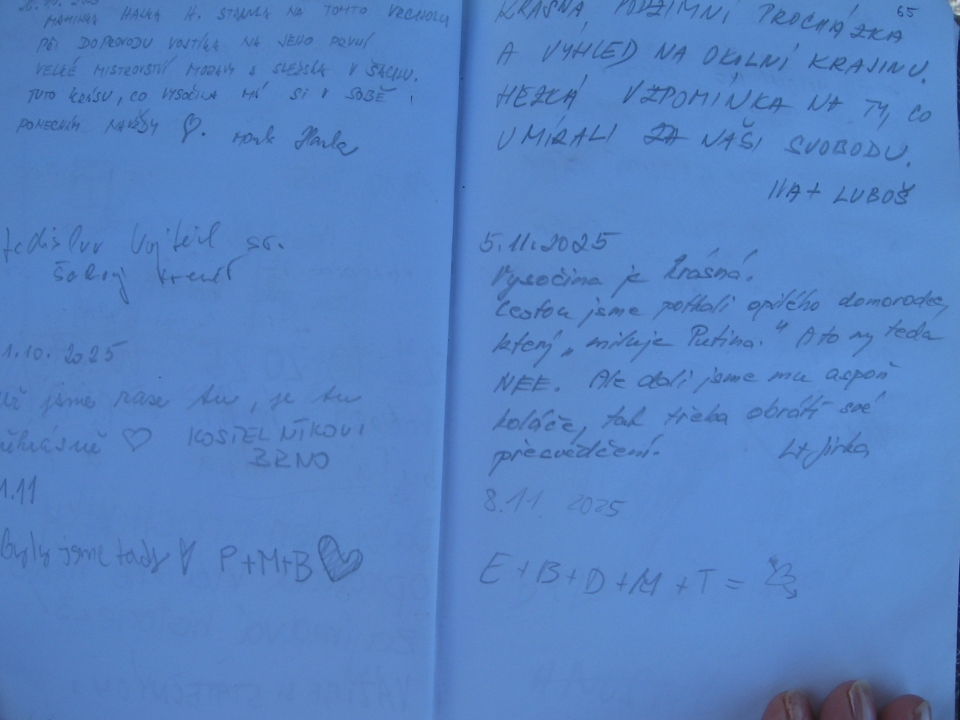 MAMINKA HANKA H. STANULA NA TOMTO VRCHOLU
PŘI DOPROVODU VOJTÍKA NA JEHO PRVNÍ
VELKÉ MISTROVSTVÍ MORAVY A SLEZSKA V ŠACHU.
TUTO KRÁSU, CO VYSOČINA MÁ SI V SOBĚ
PONECHÁM NAVŽDY ♡.
sr.
1.10.2025
Už jsme zase tu, je tu
♡ KOSTELNÍKOVI
BRNO
1.11
Byly jsme tady P+M+B
65
KRÁSNÁ, PODZIMNÍ PROCHÁZKA
A VÝHLED NA OKOLNÍ KRAJINU.
HEZKÁ VZPOMÍNKA NA TY, CO
UMÍRALI ZA NAŠI SVOBODU.
IVA + LUBOŠ
5.11.2025
Vysočina je krásná.
Cestou jsme potkali opilého domorodce,
který „miluje Putina." A to my teda
NEE. Ale dali jsme mu aspoň
koláče, tak třeba obrátí své
přesvědčení. L+Jirka
8.11.2025
E+B+D+M+T=